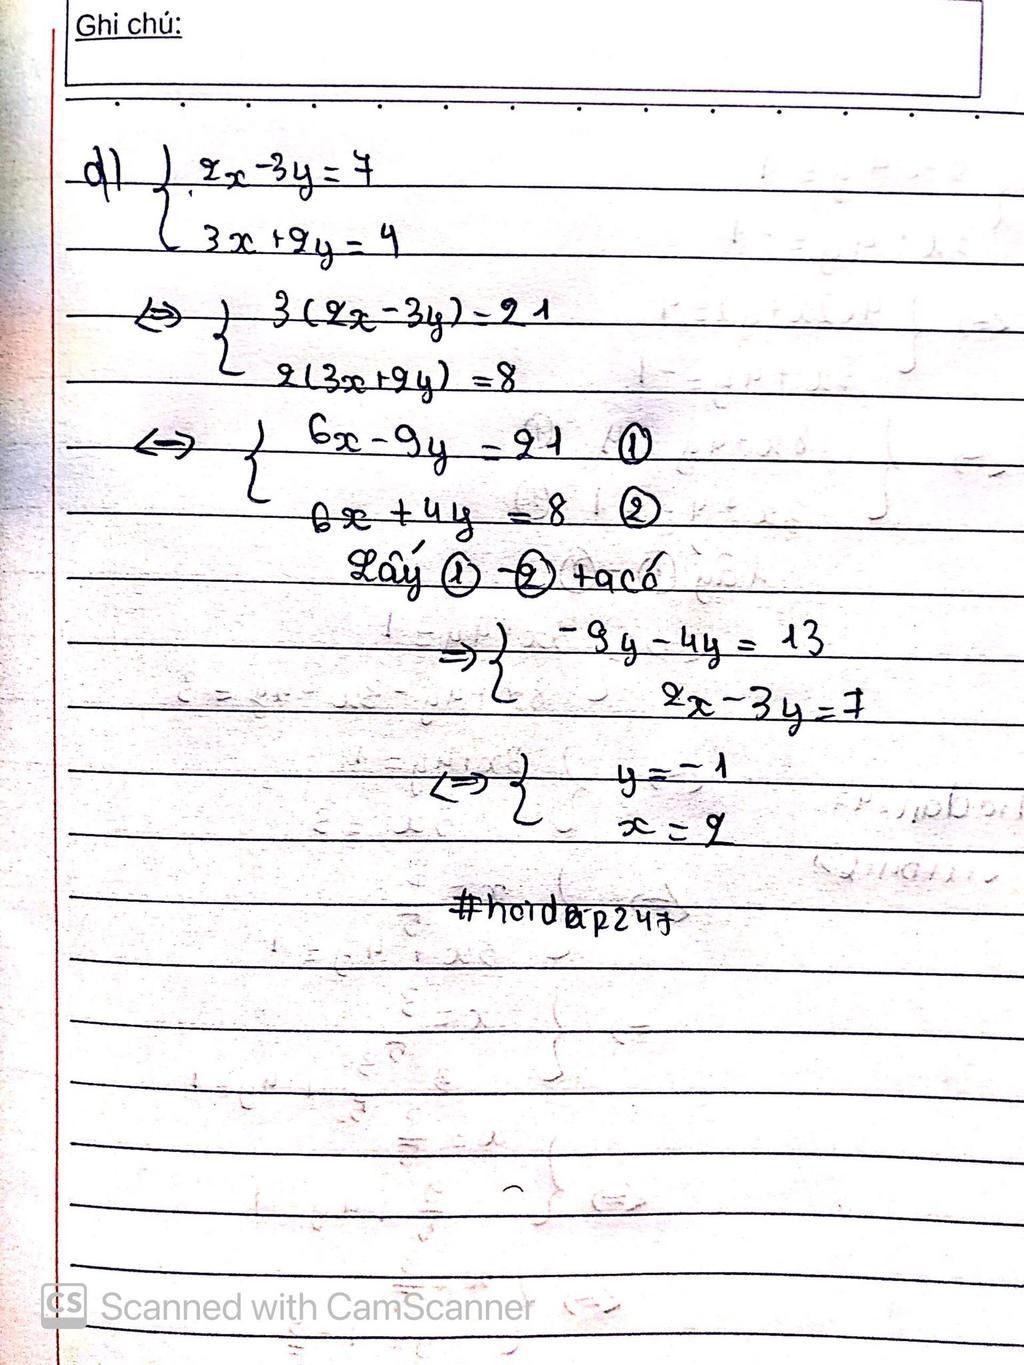 Ghi chú:
d) { 2x - 3y = 7
3x + 2y = 4
⇔ { 3(2x - 3y) = 21
2(3x + 2y) = 8
⇔ { 6x - 9y = 21 ①
6x + 4y = 8 ②
Lấy ① - ② ta có
⇒ { -9y - 4y = 13
2x - 3y = 7
⇔ { y = -1
x = 2
#hoidap247
CS Scanned with CamScanner